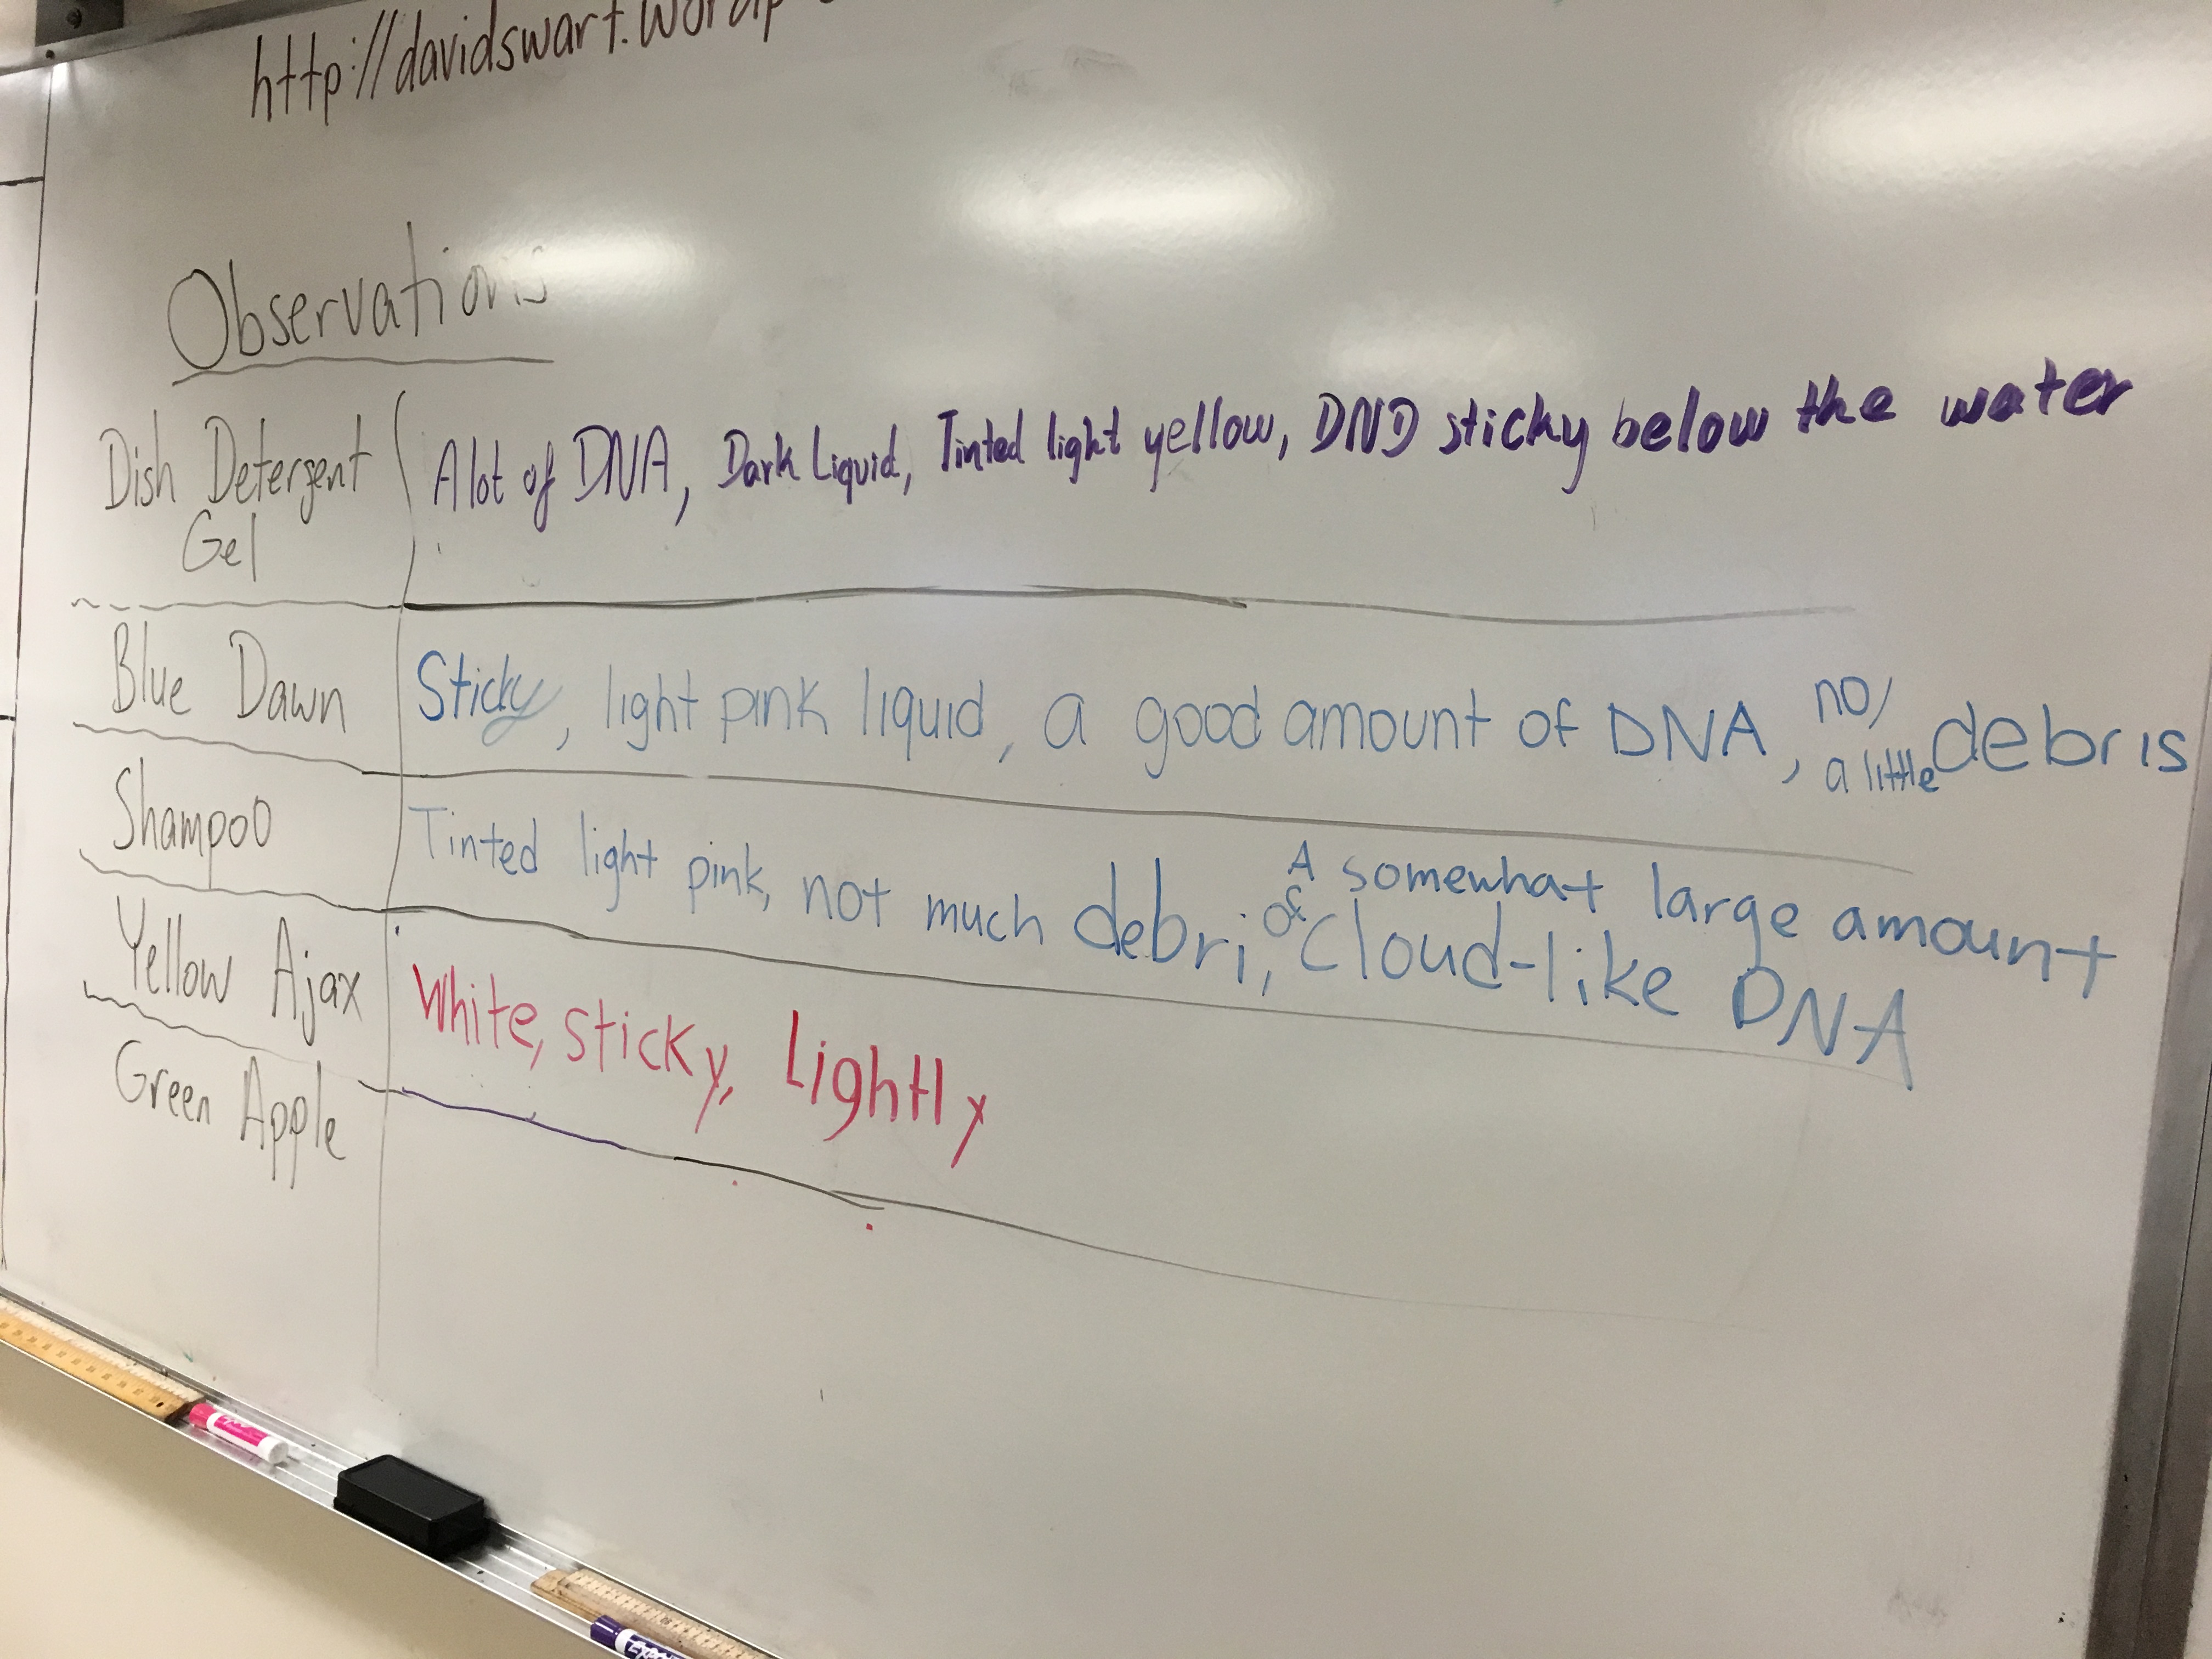 http://davidswart.wordp
Observations
Dish Detergent
Gel
Alot of DNA, Dark Liquid, Tinted light yellow, DND sticky below the water
Blue Dawn
Sticky, light pink liquid, a good amount of DNA, no/ a little debris
Shampoo
Tinted light pink, not much debri, A somewhat large amount
of Cloud-like DNA
Yellow Ajax
White, sticky, Lightly
Green Apple